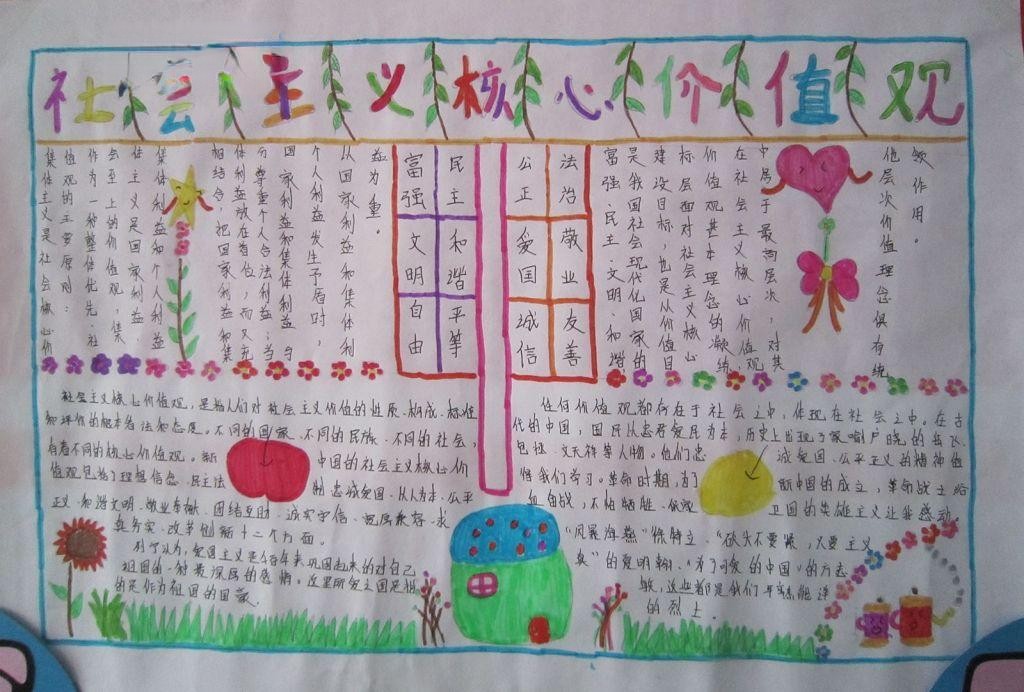 社会主义核心价值观
集体主义是社会核心价
值观的主要原则:
作为一种整体优先、社
会上的价值观,集
体主义是国家利益
集体利益和个人利益
相结合,把国家利益和集
体利益放在首位,而又充
分尊重个人合法利益;当
国家利益和集体利益与
个人利益发生矛盾时,
从国家利益和集体利
益为重。
富强 民主
文明 和谐
自由 平等
公正 法治
爱国 敬业
诚信 友善
富强、民主、文明、和谐
是我国社会现代化国家的
建设目标,也是从价值目
标层面对社会主义核心
价值观基本理念的凝练,
在社会主义核心价值观
中居于最高层次,对其
他层次价值理念俱有统
作用。
社会主义核心价值观,是指人们对社会主义价值的性质、构成、标准
和评价的根本看法和态度。不同的国家、不同的民族、不同的社会,
有着不同的核心价值观。新 中国的社会主义核心价
值观包括了理想信念、民主法制 忠诚爱国、以人为本、公平
正义、和谐文明、敬业奉献、团结互助、诚实守信、求
真务实、改革创新十二个方面。
列宁认为,爱国主义是千百年来巩固起来的对自己
祖国的一种最深厚的感情。这里所爱之国是指
的是作为祖国的国家。
任何价值观都存在于社会之中,体现在社会之中。在古
代的中国,国民以忠君爱民为本,历史上出现了家喻户晓的岳飞、
包拯、文天祥等人物。他们忠 诚爱国、公平正义的精神值
得我们学习。革命时期,为了 新中国的成立,革命战士浴
血奋战,不怕牺牲、 卫国的英雄主义让我感动。
“风暴海燕”徐特立、“砍头不要紧,只要主义
真”的夏明翰、“为了可爱的中国”的方志
敏,这些都是我们耳熟能详
的烈士。